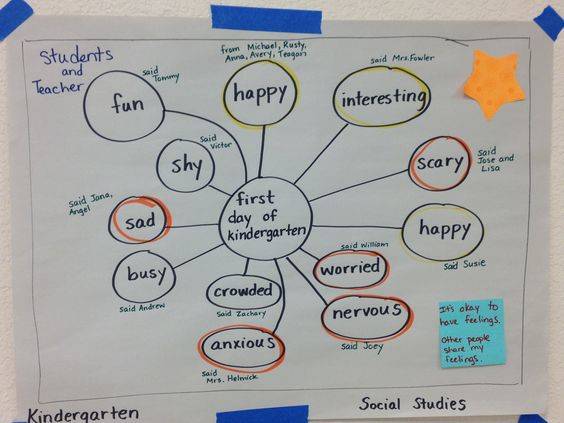 Students
and
Teacher
said
Tommy
fun
from Michael, Rusty,
Anna, Avery, Teagan
happy
said Mrs. Fowler
interesting
said
Victor
shy
said
Jose and
Lisa
scary
said Jana,
Angel
sad
first
day of
kindergarten
happy
said Susie
busy
said Andrew
crowded
said Zachary
said William
worried
nervous
said Joey
anxious
said
Mrs. Helmick
It's okay to
have feelings.
Other people
share my
feelings.
Kindergarten
Social Studies